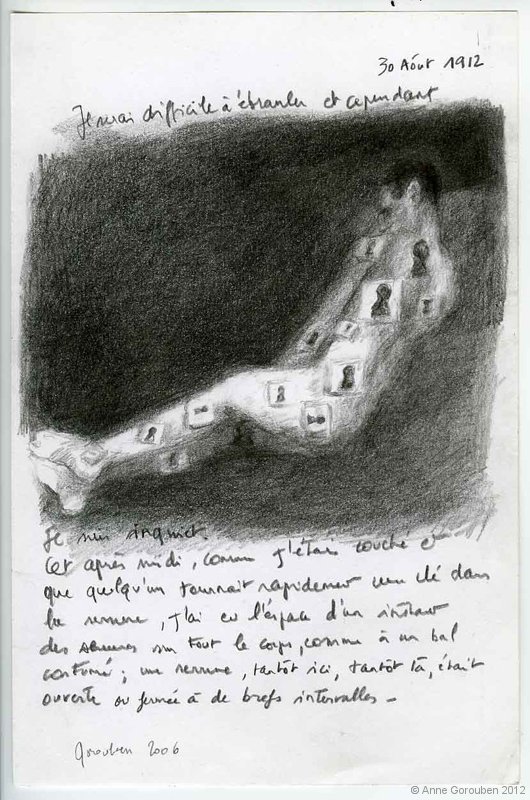 30 Août 1912
Je serai difficile à ébranler et cependant
Je suis inquiet.
Cet après midi, comme j'étais couché et
que quelqu'un tournait rapidement une clé dans
la serrure, j'ai eu l'espace d'un instant
des serrures sur tout le corps, comme à un bal
costumé ; une serrure, tantôt ici, tantôt là, était
ouverte ou fermée à de brefs intervalles –
Gorouben 2006
© Anne Gorouben 2012